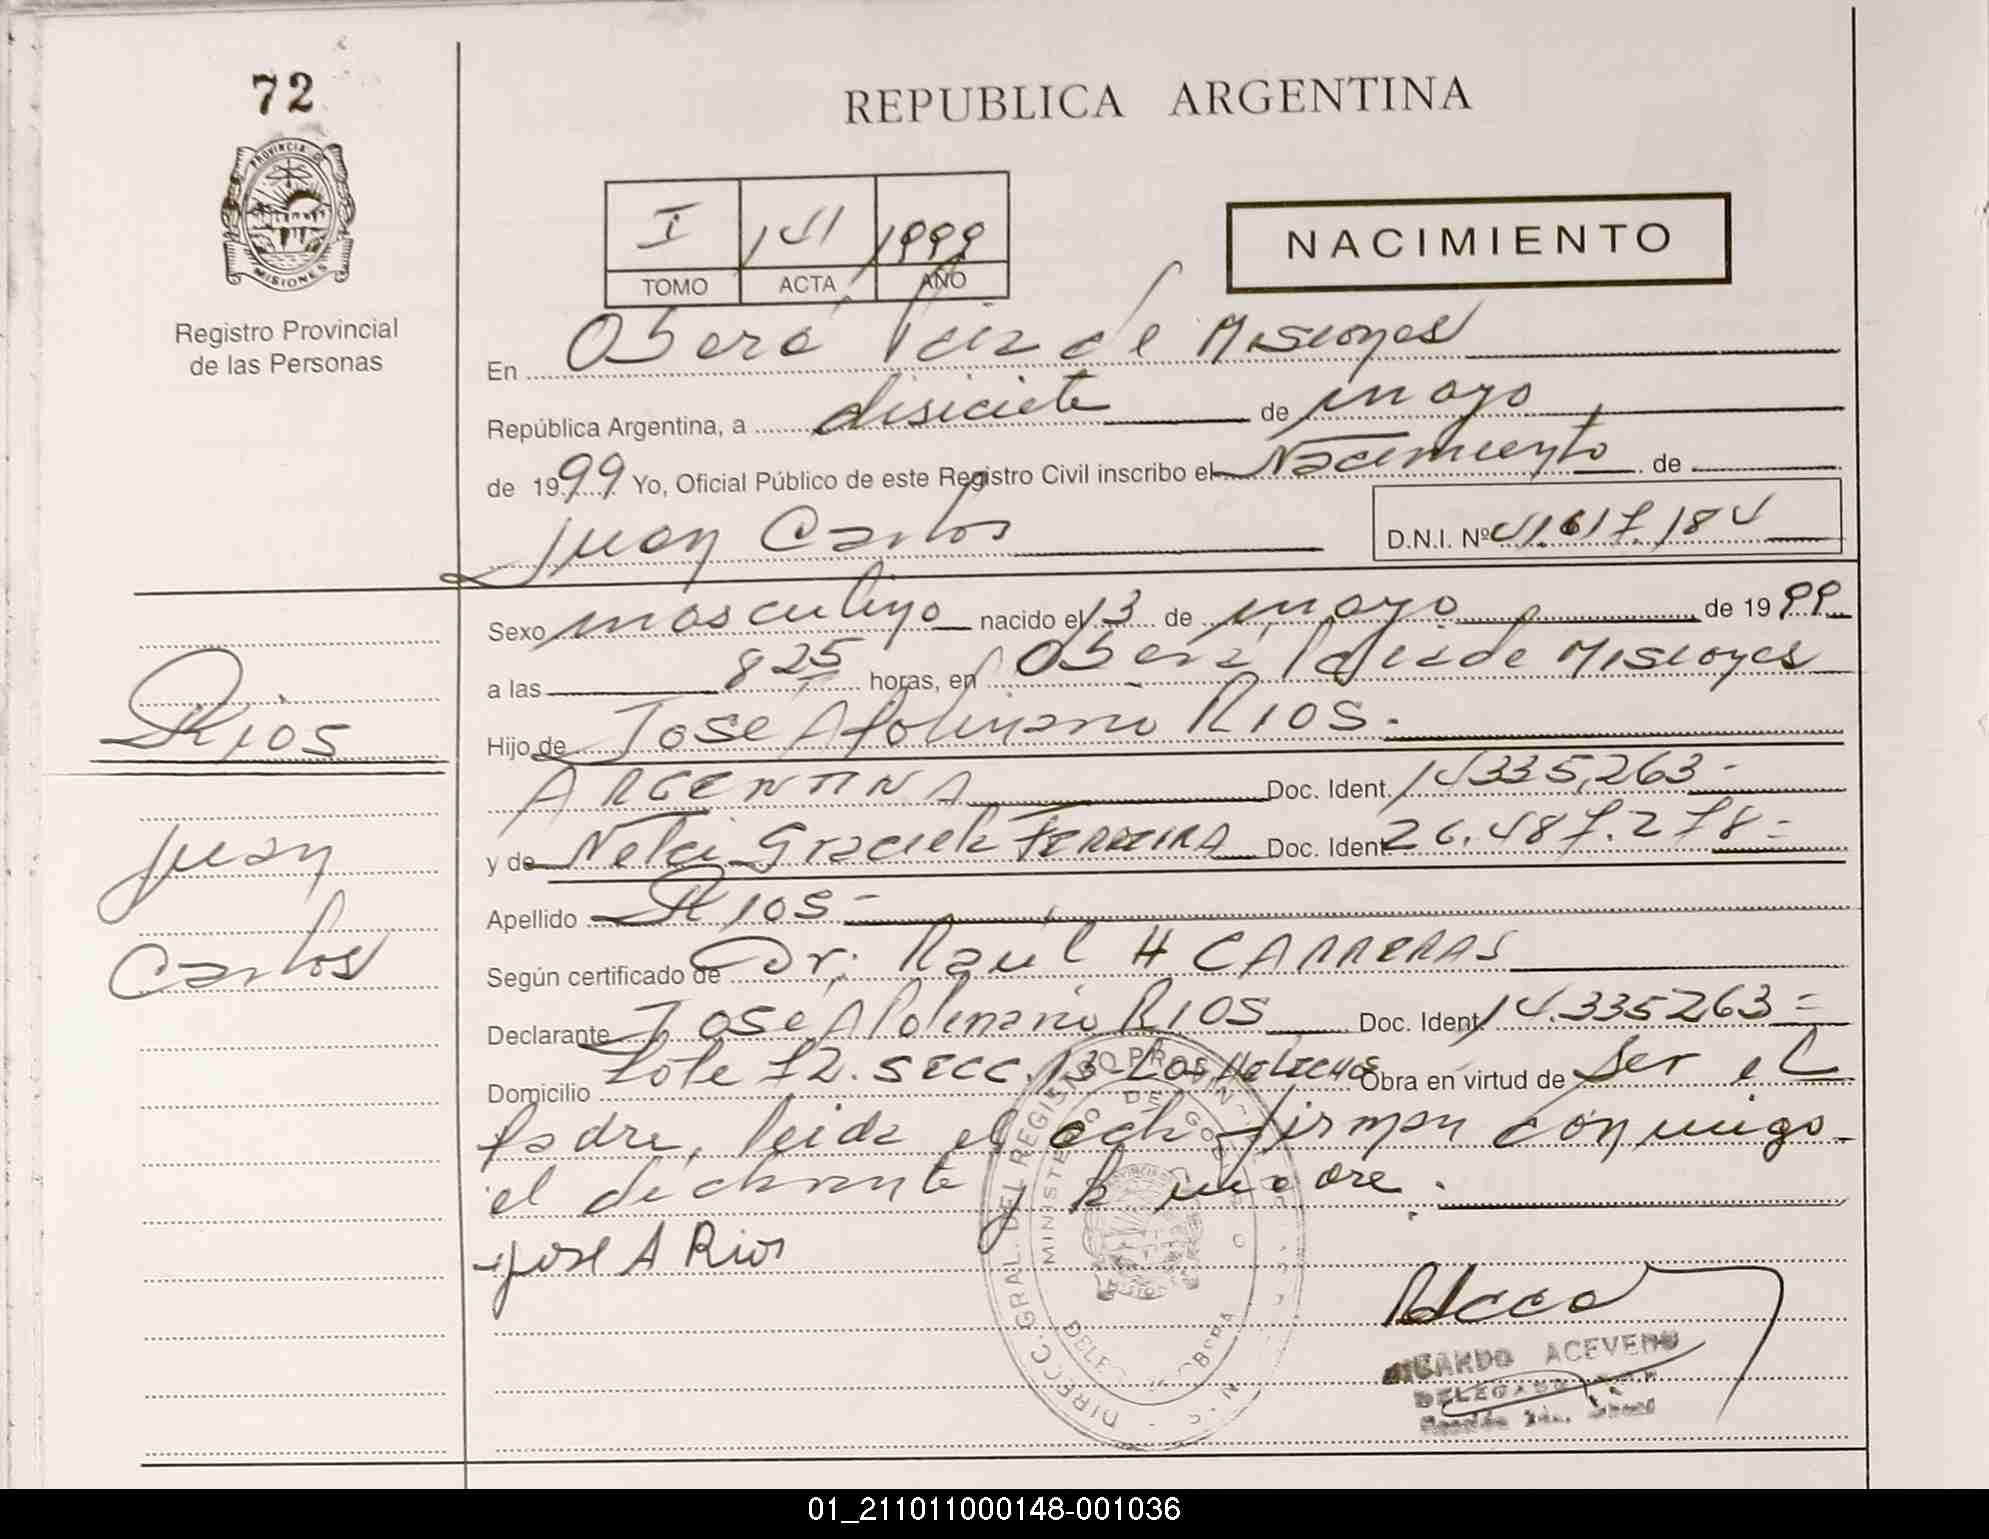 72
REPUBLICA ARGENTINA
PROVINCIA DE
MISIONES
Registro Provincial
de las Personas
I 141 1999
TOMO ACTA AÑO
NACIMIENTO
En Oberá Pcia de Misiones
República Argentina, a disiciete de mayo
de 1999 Yo, Oficial Público de este Registro Civil inscribo el Nacimiento de
Juan Carlos D.N.I. Nº 41.617.184
Sexo masculino nacido el 13 de mayo de 1999
a las 8 25 horas, en Oberá Pcia de Misiones
Rios
Hijo de José Apolinario RIOS.
ARGENTINA Doc. Ident. 14335,263-
Juan
y de Nelci Graciela FERREIRA Doc. Ident. 26.487.278=
Apellido RIOS-
Carlos
Según certificado de Dr. Raúl H CARRERAS
Declarante José Apolinario RIOS Doc. Ident. 14.335263=
Domicilio Lote 72. SECC. 13- Los Helechos Obra en virtud de Ser el
Padre, leida el acta firman conmigo
el declarante y la madre.
Jose A Rios
DIRECC. GRAL. DEL REGISTRO PROVINCIAL
MINISTERIO DE GOBIERNO
OBERA
RICARDO ACEVEDO
DELEGADO
01_211011000148-001036